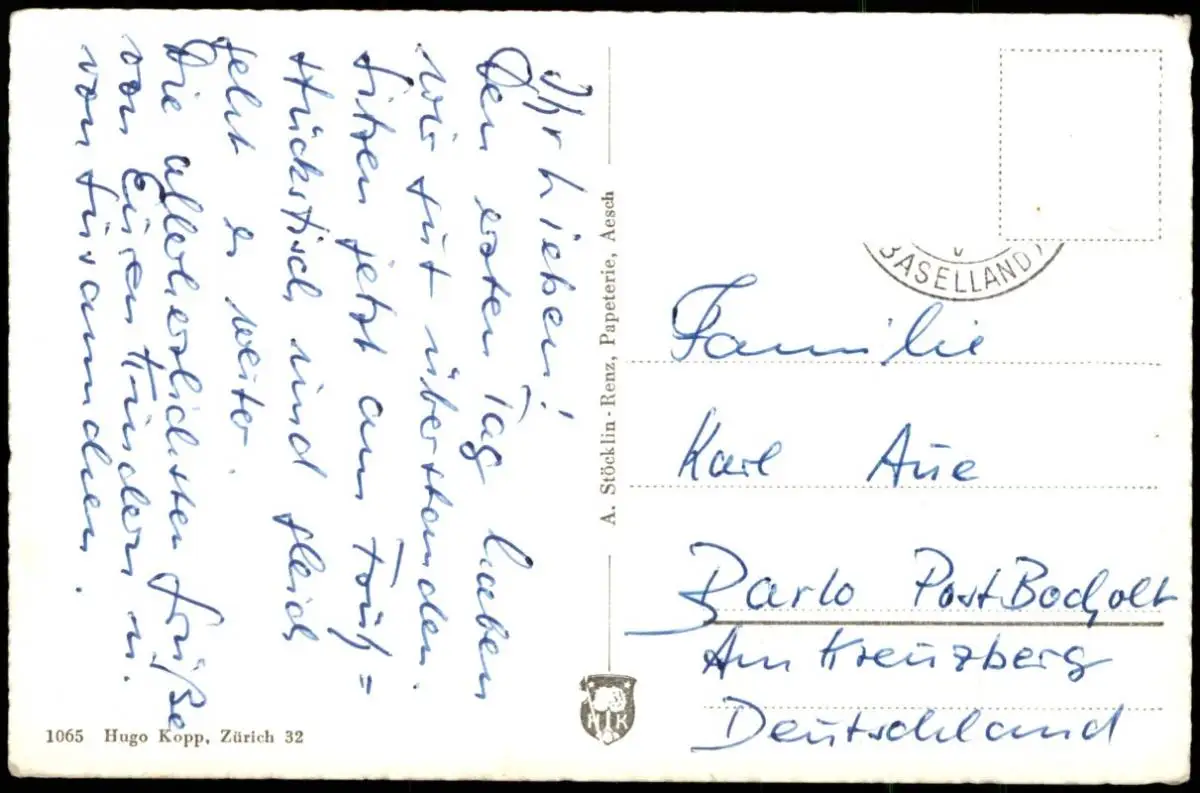 Ihr Lieben!
Den ersten Tag haben
wir gut überstanden.
Sitzen jetzt am Früh=
stückstisch und gleich
geht es weiter.
Die allerherzlichsten Grüße
von Euren Kindern u.
von
A. Stöcklin-Renz, Papeterie, Aesch
BASELLAND
Familie
Karl Aue
Barlo Post Bocholt
Am Kreuzberg
Deutschland
HK
1065 Hugo Kopp, Zürich 32